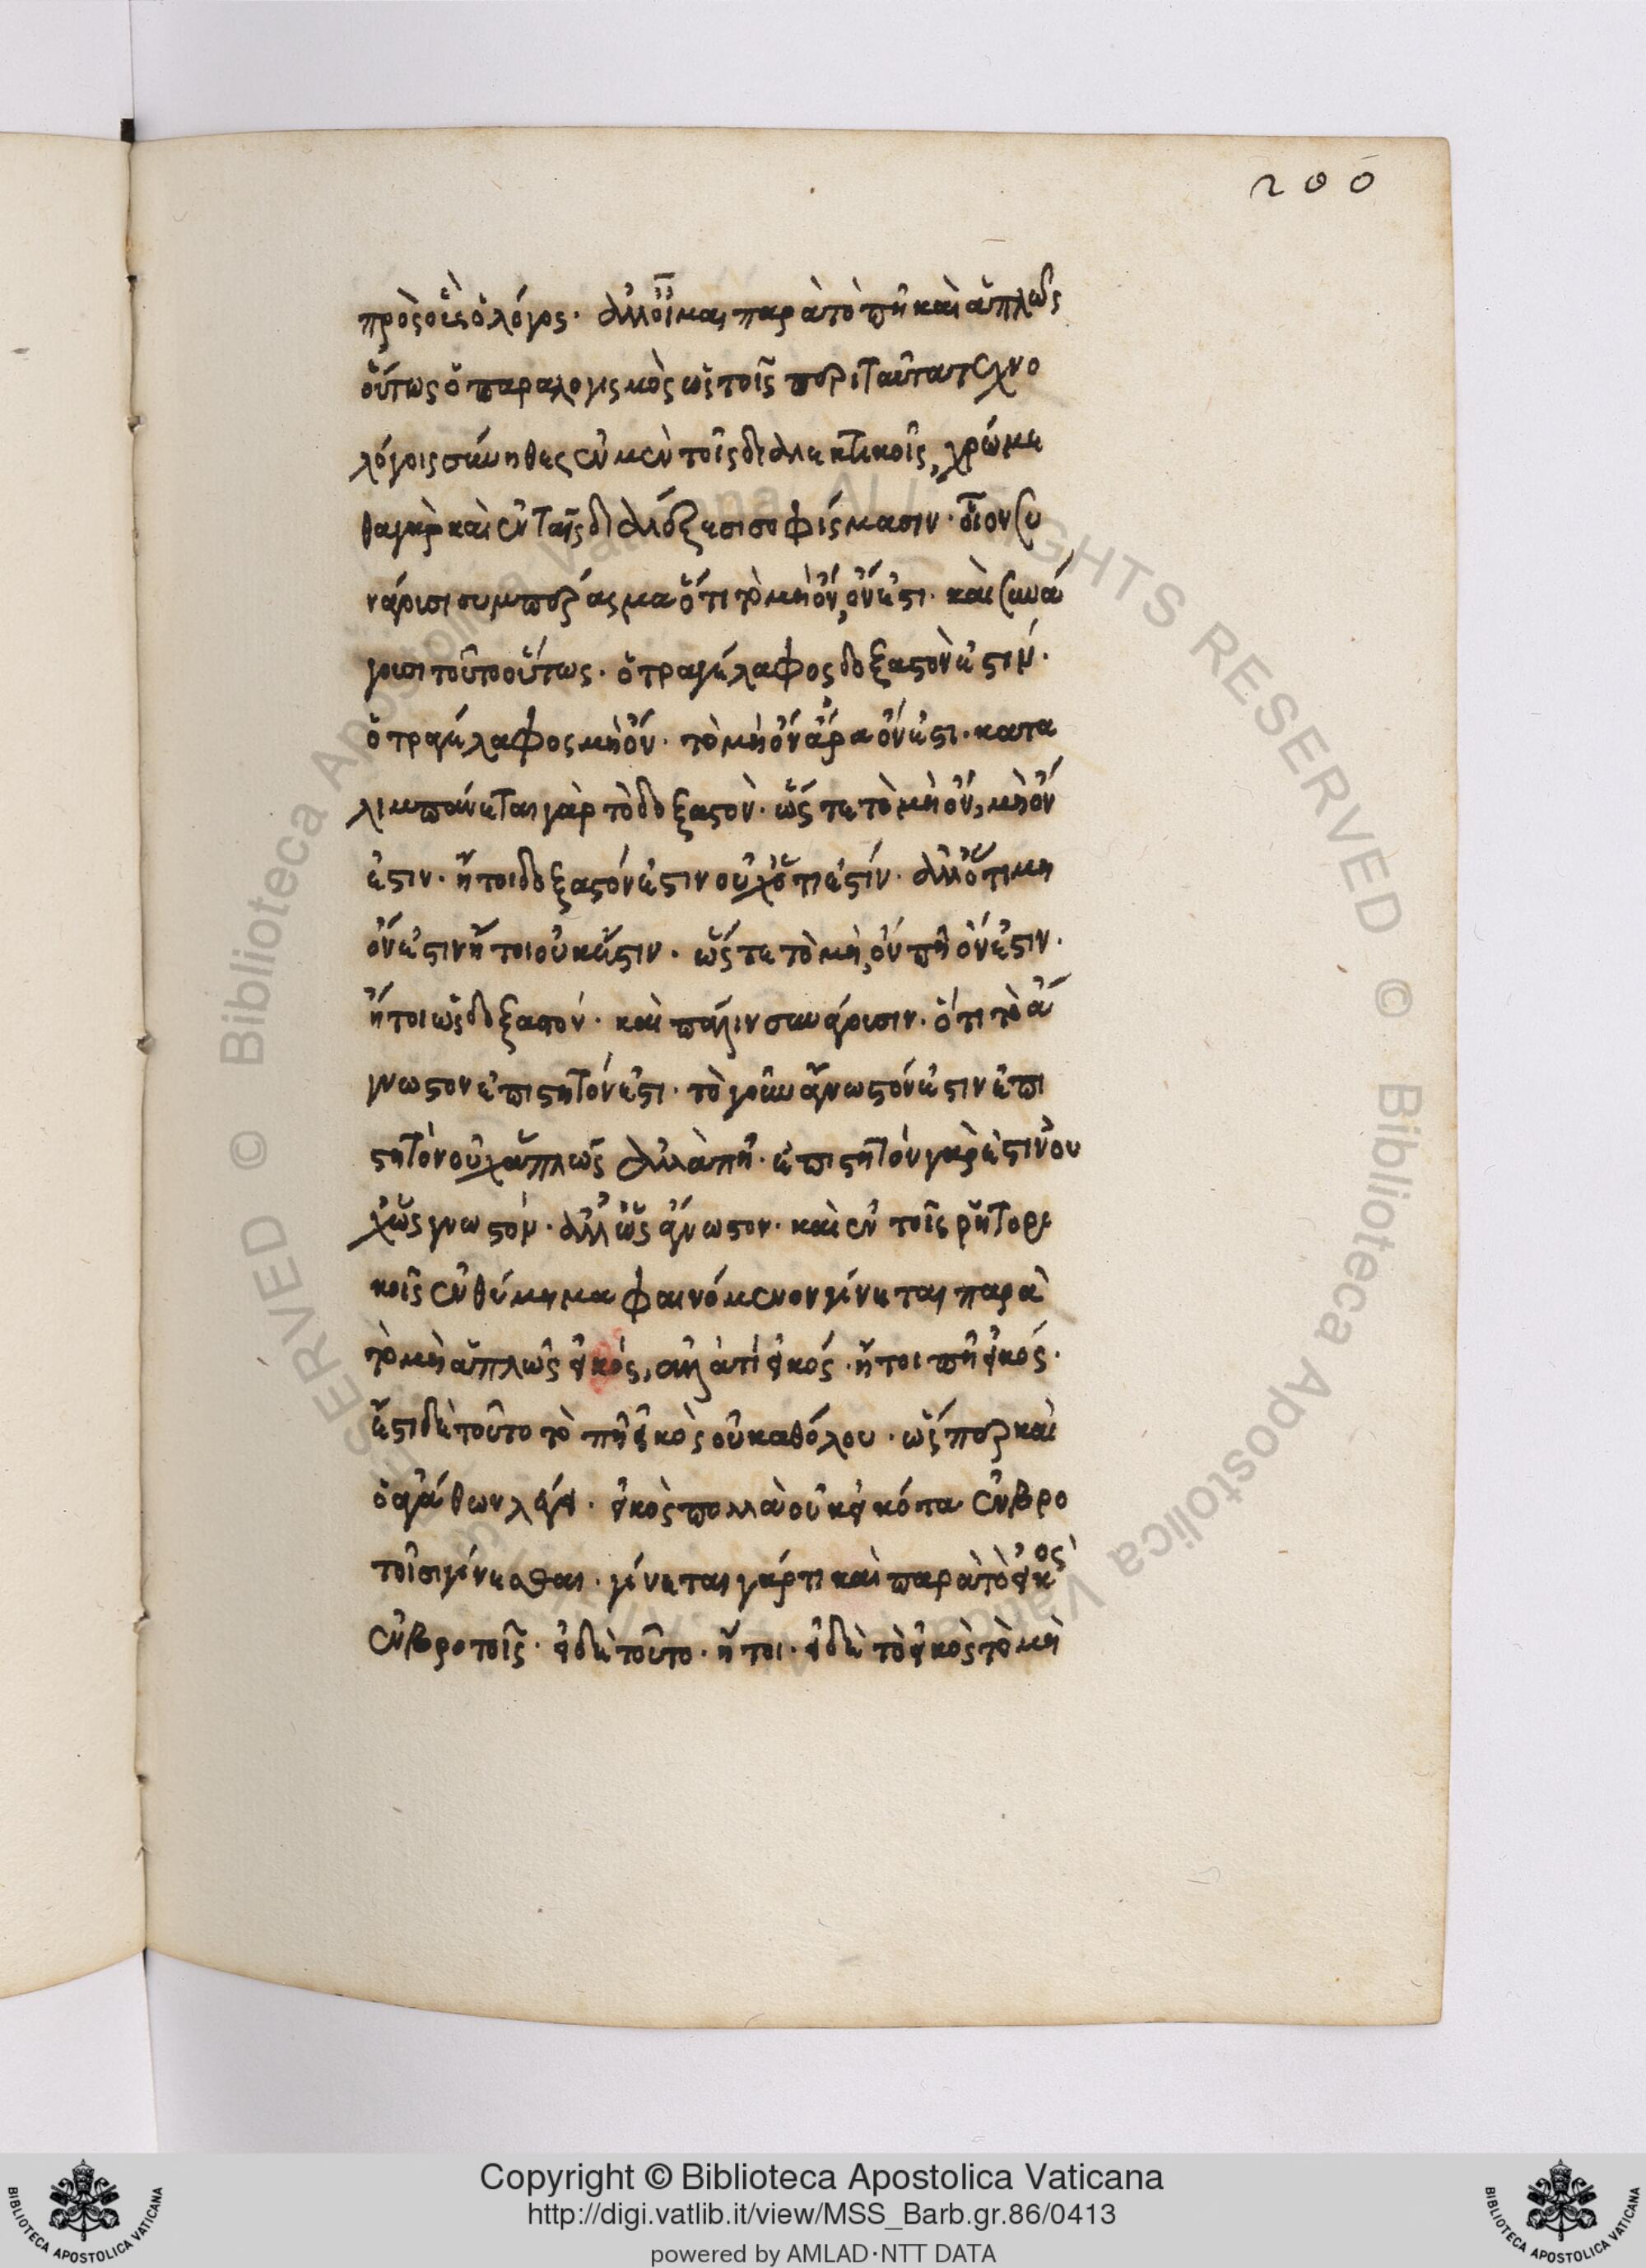 200
πρὸς οὓς ὁ λόγος· ἀλλ' οἶμαι παρὰ τὸ πῆ καὶ ἁπλῶς
οὕτως ὁ παραλογισμὸς ὡς τοῖς περὶ ταῦτα τεχνο
λόγοις σύνηθες ἐν μὲν τοῖς διαλεκτικοῖς, χρώμε
θα γὰρ καὶ ἐν ταῖς διαλέξεσι σοφίσμασιν· οἷον συ
ἄγουσι τοῦτο οὕτως· ὁ τραγέλαφος δοξαστὸν ἐστιν·
ὁ τραγέλαφος μὴ ὄν· τὸ μὴ ὂν ἄρα ὄν ἐστι· κατα
λιμπάνεται γὰρ τὸ δοξαστὸν· ὥστε τὸ μὴ ὄν, μὴ ὄν
ἐστιν· ἤτοι δοξαστόν ἐστιν οὐχ ὅτι ἐστίν· ἀλλ' ὅτι μὴ
ὄν ἐστιν ἤτοι οὐκ ἔστιν· ὥστε τὸ μὴ, ὄν πῆ ὄν ἐστιν·
ἤτοι ὡς δοξαστόν· καὶ πάλιν συνάρουσιν· ὅτι τὸ ἄ
γνωστον ἐπιστητόν ἐστι· τὸ γοῦν ἄγνωστόν ἐστιν ἐπι
στητὸν οὐχ ἁπλῶς ἀλλὰ πῆ· ἐπιστητὸν γάρ ἐστιν οὐ
χ ὡς γνωστόν· ἀλλ' ὡς ἄγνωστον· καὶ ἐν τοῖς ῥητορι
κοῖς ἐνθύμημα φαινόμενον γίνεται παρὰ
τὸ μὴ ἁπλῶς εἰκός, ἀλλὰ τὶ εἰκός· ἤτοι πῆ εἰκός·
ἔστι δὲ τοῦτο τὸ πῆ εἰκὸς οὐ καθόλου· ὥσπερ καὶ
ὁ ἀγάθων λέγει· εἰκὸς πολλὰ οὐκ εἰκότα ἐν βρο
τοῖσι γίνεσθαι· γίνεται γάρ τι καὶ παρὰ τὸ εἰκὸς
ἐν βροτοῖς· εἰ δὲ τοῦτο· ἤτοι· εἰ δὲ τὸ εἰκὸς τὸ μὴ
Copyright © Biblioteca Apostolica Vaticana
http://digi.vatlib.it/view/MSS_Barb.gr.86/0413
powered by AMLAD·NTT DATA